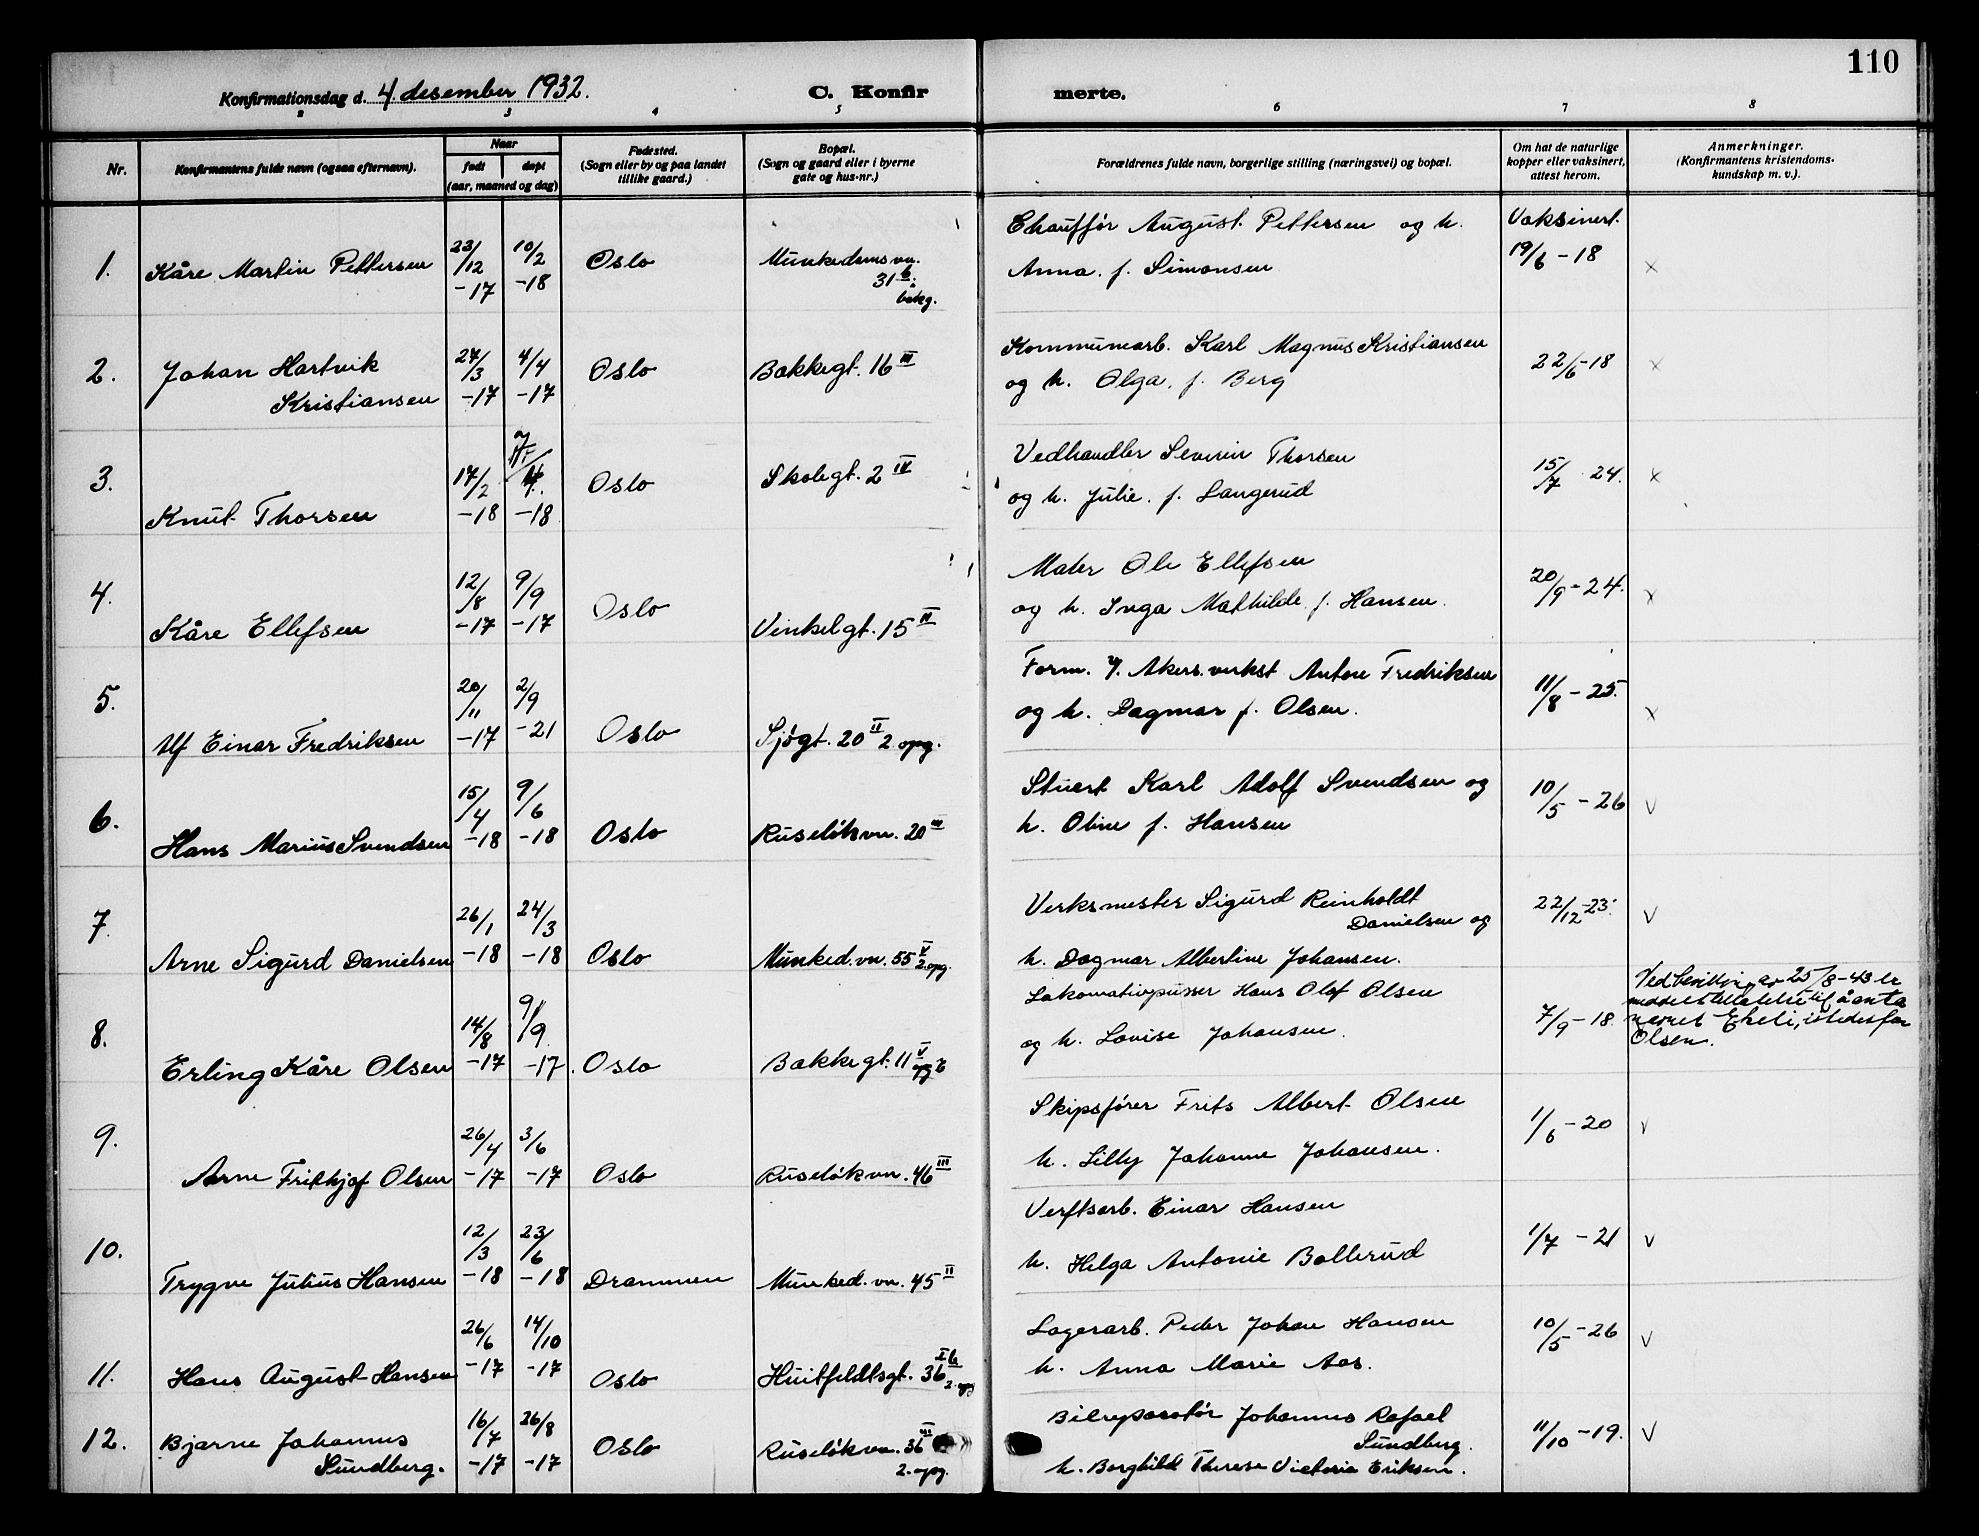 110
Konfirmationsdag d. 4. desember 1932.
C. Konfir
merte.
2 3 4 5 6 7 8
Nr.
Konfirmantens fulde navn (ogsaa efternavn).
Naar
født
døpt
(aar, maaned og dag)
Fødested.
(Sogn eller by og paa landet
tillike gaard.)
Bopæl.
(Sogn og gaard eller i byerne
gate og hus-nr.)
Forældrenes fulde navn, borgerlige stilling (næringsvei) og bopæl.
Om hat de naturlige
kopper eller vaksinert,
attest herom.
Anmerkninger.
(Konfirmantens kristendoms-
kundskap m. v.).
1. Kåre Martin Pettersen 23/12 -17 10/2 -18 Oslo Munkedamsvn.
31 b.
bakg.
Chauffør August Pettersen og h.
Anna. f. Simonsen
Vaksinert.
19/6 - 18 x
2. Johan Hartvik
Kristiansen 27/3 -17 4/4 -17 Oslo Bakkegt. 16 III
Kommunearb. Karl Magnus Kristiansen
og h. Olga. f. Berg
22/6-18 x
3. Knut Thorsen 17/2 -18 -18 Oslo Skolegt. 2 IV
Vedhandler Severin Thorsen
og h. Julie. f. Langerud
15/7 24. x
4. Kåre Ellefsen 12/8 -17 9/9 -17 Oslo Vinkelgt. 15 IV
Maler Ole Ellefsen
og h. Inga Mathilde f. Hansen.
20/9 - 24. x
5. Ulf Einar Fredriksen 20/11 -17 2/9 -21 Oslo Sjøgt. 20 II 2. opg.
Form. v/. Akers. verkst Anton Fredriksen
og h. Dagmar f. Olsen.
11/8 - 25. x
6. Hans Marius Svendsen 15/4 -18 9/6 -18 Oslo Ruseløkvn. 20 III
Stuert Karl Adolf Svendsen og
h. Oline f. Hansen
10/5 - 26 v
7. Arne Sigurd Danielsen 26/1 -18 24/3 -18 Oslo Munked.vn. 55 V 2. opg.
Verksmester Sigurd Reinholdt
Danielsen og
h. Dagmar Albertine Johansen.
22/12-23. v
8. Erling Kåre Olsen 14/8 -17 9/9. -17. Oslo Bakkegt. 11 V opg 2
Lokomativpusser Hans Olaf Olsen
og h. Lovise Johansen.
7/9 - 18.
Ved bevilling av 25/8-43 er
meddelt tillatelse til å anta
navnet Ekeli, istedetfor
Olsen.
9. Arne Frithjof Olsen 26/4 -17 3/6 -17 Oslo Ruseløkvn. 46 III
Skipsfører Frits Albert Olsen
h. Lilly Johanne Johansen.
1/6 - 20 v
10. Trygve Julius Hansen 12/3 -18 23/6 -18 Drammen Munked. vn. 45 II
Verftsarb. Einar Hansen
h. Helga Antonie Bollerud
1/7 - 21 v
11. Hans August Hansen 26/6 -17 14/10 -17 Oslo Huitfeldtsgt. 36 I b 2. opg
Lagerarb. Peder Johan Hansen
h. Anna Marie Aas.
10/5 - 26 v
12. Bjarne Johannes
Sundberg. 16/7 -17 26/8 -17 Oslo Ruseløkvn. 36 III
2. opg.
Bilreparatør Johannes Rafael
Sundberg.
h. Borghild Therese Victoria Eriksen.
11/10 - 19. v